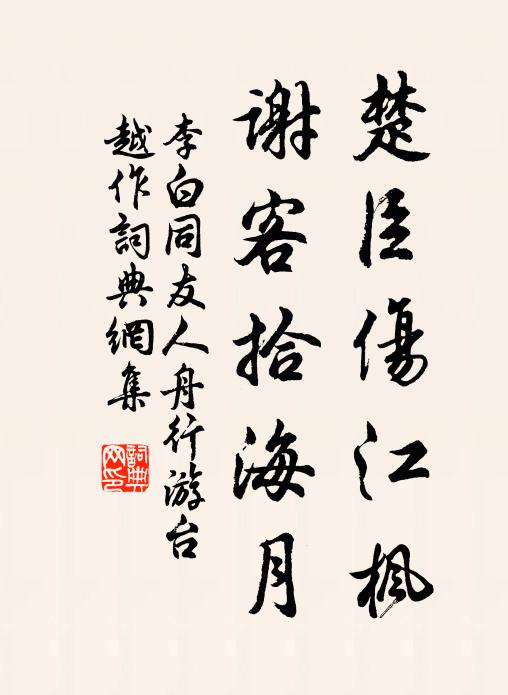 楚臣傷江楓
謝客拾海月
李白同友人舟行游台
越作詞典網集
詞典网印